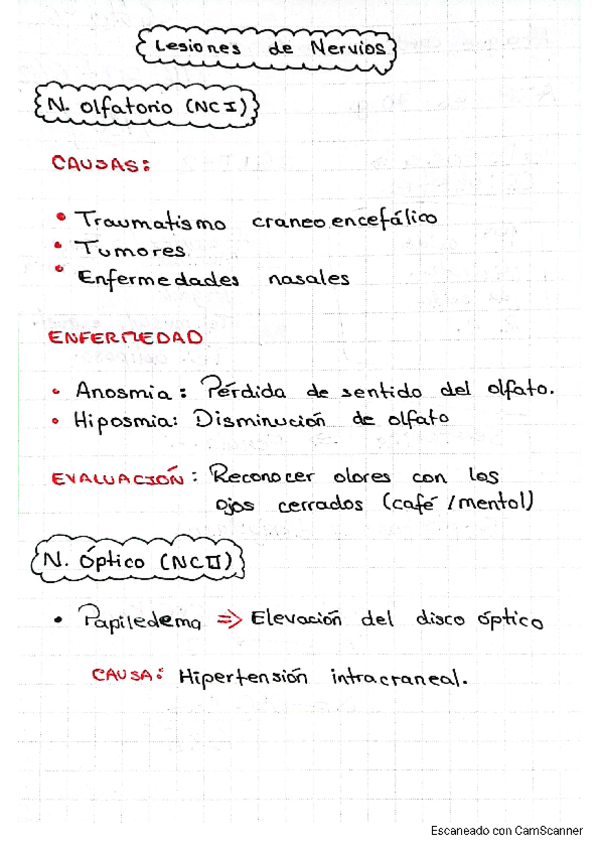 Lesiones de Nervios
N. Olfatorio (NC I)
CAUSAS:
• Traumatismo craneoencefálico
• Tumores
• Enfermedades nasales
ENFERMEDAD
• Anosmia: Pérdida de sentido del olfato.
• Hiposmia: Disminución de olfato
EVALUACIÓN: Reconocer olores con los
ojos cerrados (café / mentol)
N. Óptico (NC II)
• Papiledema => Elevación del disco óptico
CAUSA: Hipertensión intracraneal.
Escaneado con CamScanner